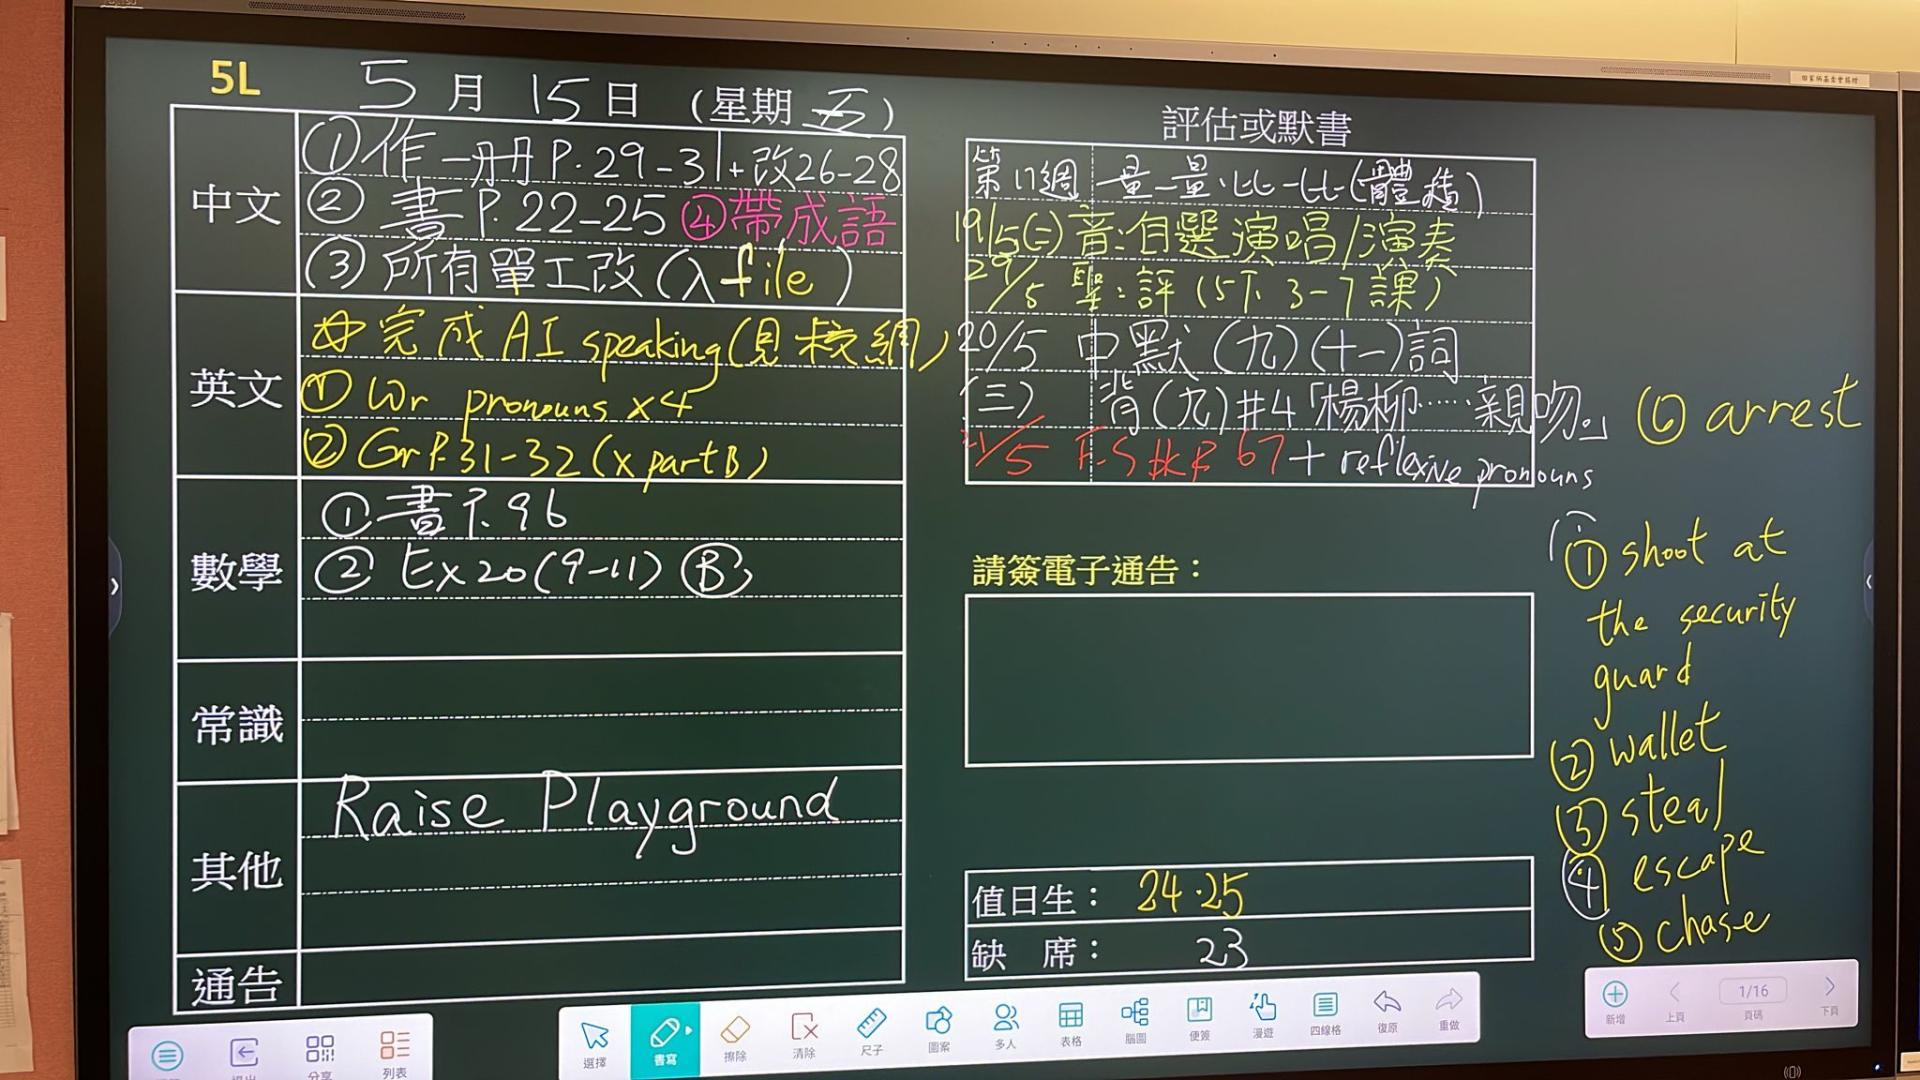 5L 5月15日 (星期五)
中文
①作一册P.29-31+改26-28
②書P.22-25 ④帶成語
③所有單工改(入file)
英文
✡完成AI speaking(見校網)
①Wr pronouns x4
②Gr P.31-32(x part B)
數學
①書P.96
②Ex20(9-11)Ⓑ
常識
其他
Raise Playground
通告
評估或默書
第17週 量一量.比一比(體積)
19/5(二)音:自選演唱/演奏
29/5 聖:評(5下3-7課)
20/5 中默(九)(十一)詞
(三) 背(九)#4「楊柳……親吻。」
21/5 67+reflexive pronouns
請簽電子通告:
值日生: 24.25
缺 席: 23
⑥arrest
①shoot at
the security
guard
②wallet
③steal
④escape
⑤chase
分享
列表
選擇
書寫
擦除
清除
尺子
圖案
多人
表格
腦圖
便簽
漫遊
四線格
復原
重做
新增
上頁
1/16
頁碼
下頁